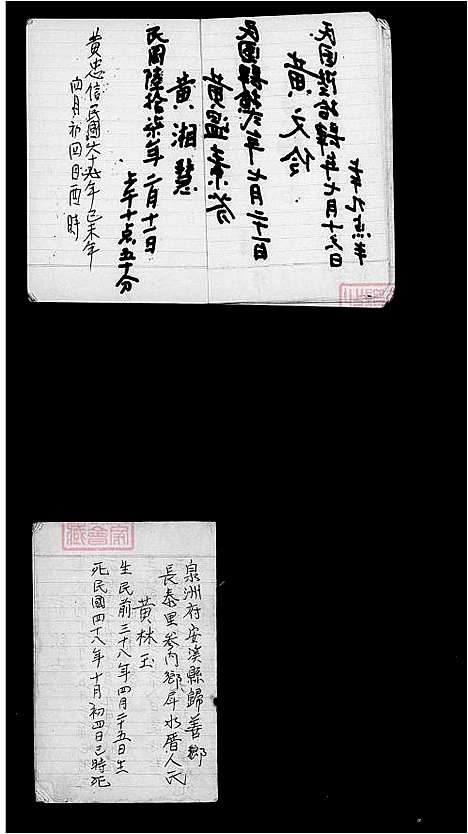 民国陸拾肆年七月十六日
上午九点半
黃文伶
民国肆拾弍年七月二十一日
黃溫素芬
黃湘慧
民国陸拾柒年二月十二日
上午十点五十分
黃忠信民國六十九年己未年
四月初四日酉時
泉洲府安溪縣歸善鄉
長泰里參內鄉岸水厝人氏
黃林玉
生民前三十八年四月二十五日生
死民國四十八年十月初四日巳時死